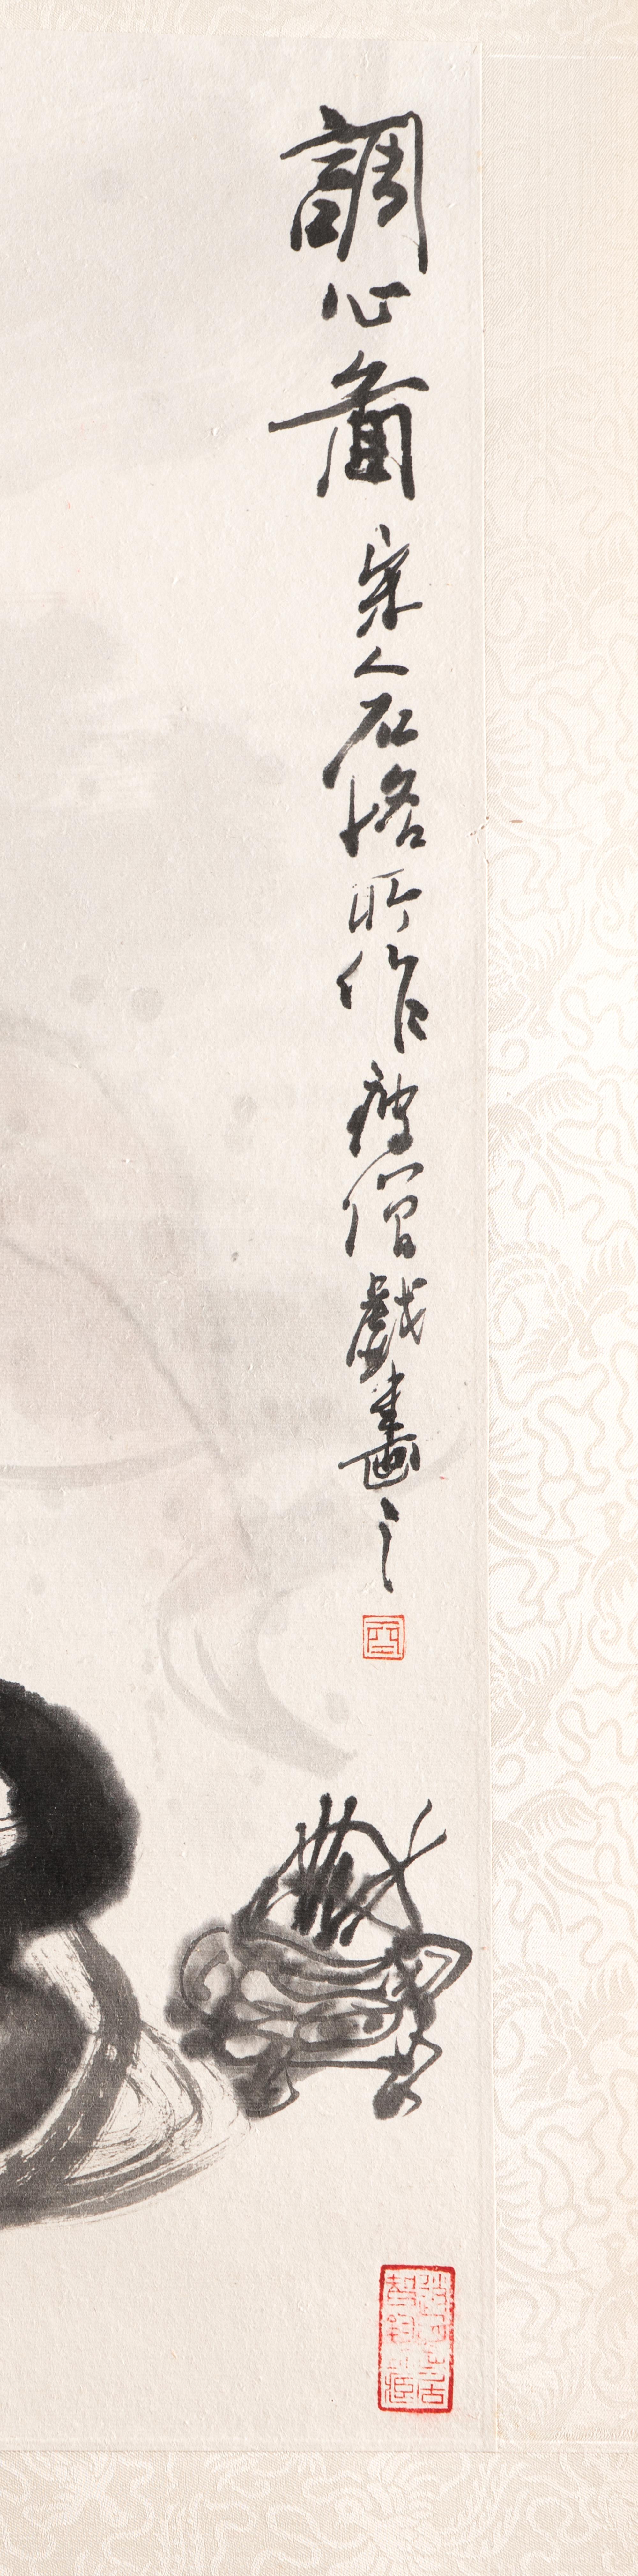 調心啚宋人石恪所作瘦僧戲畫之